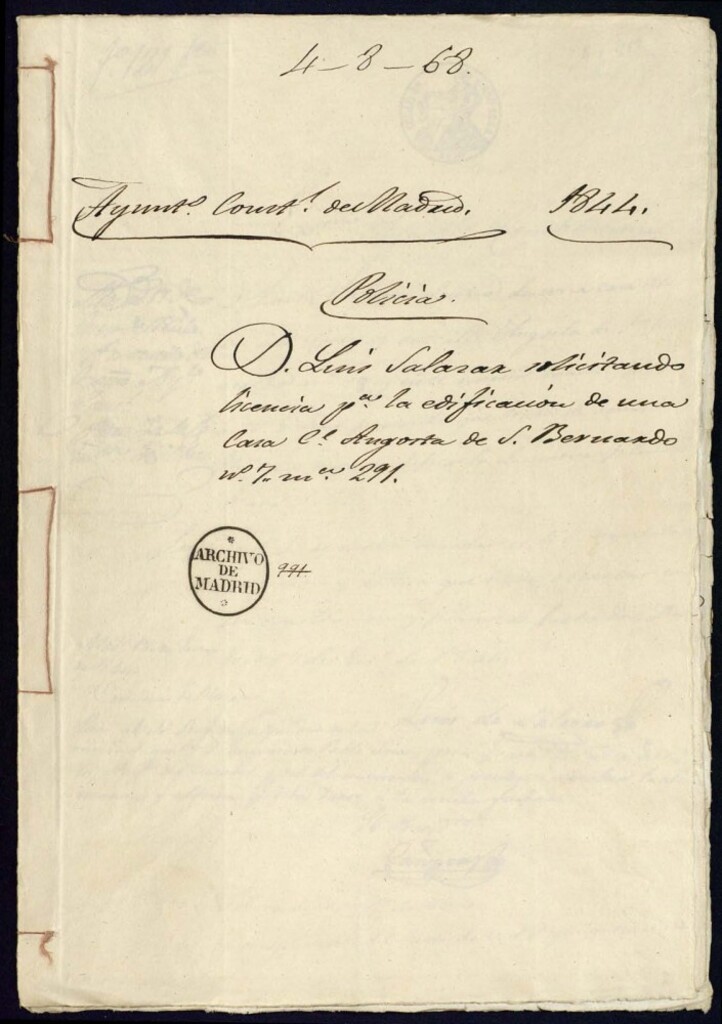 4-8-68.
Ayunt.º Const.l de Madrid. 1844.
Policia.
D. Luis Salazar solicitando
licencia p.a la edificacion de una
Casa C.e Angosta de S. Bernardo
n.º 7. m.a 291.
ARCHIVO
DE
MADRID
991.